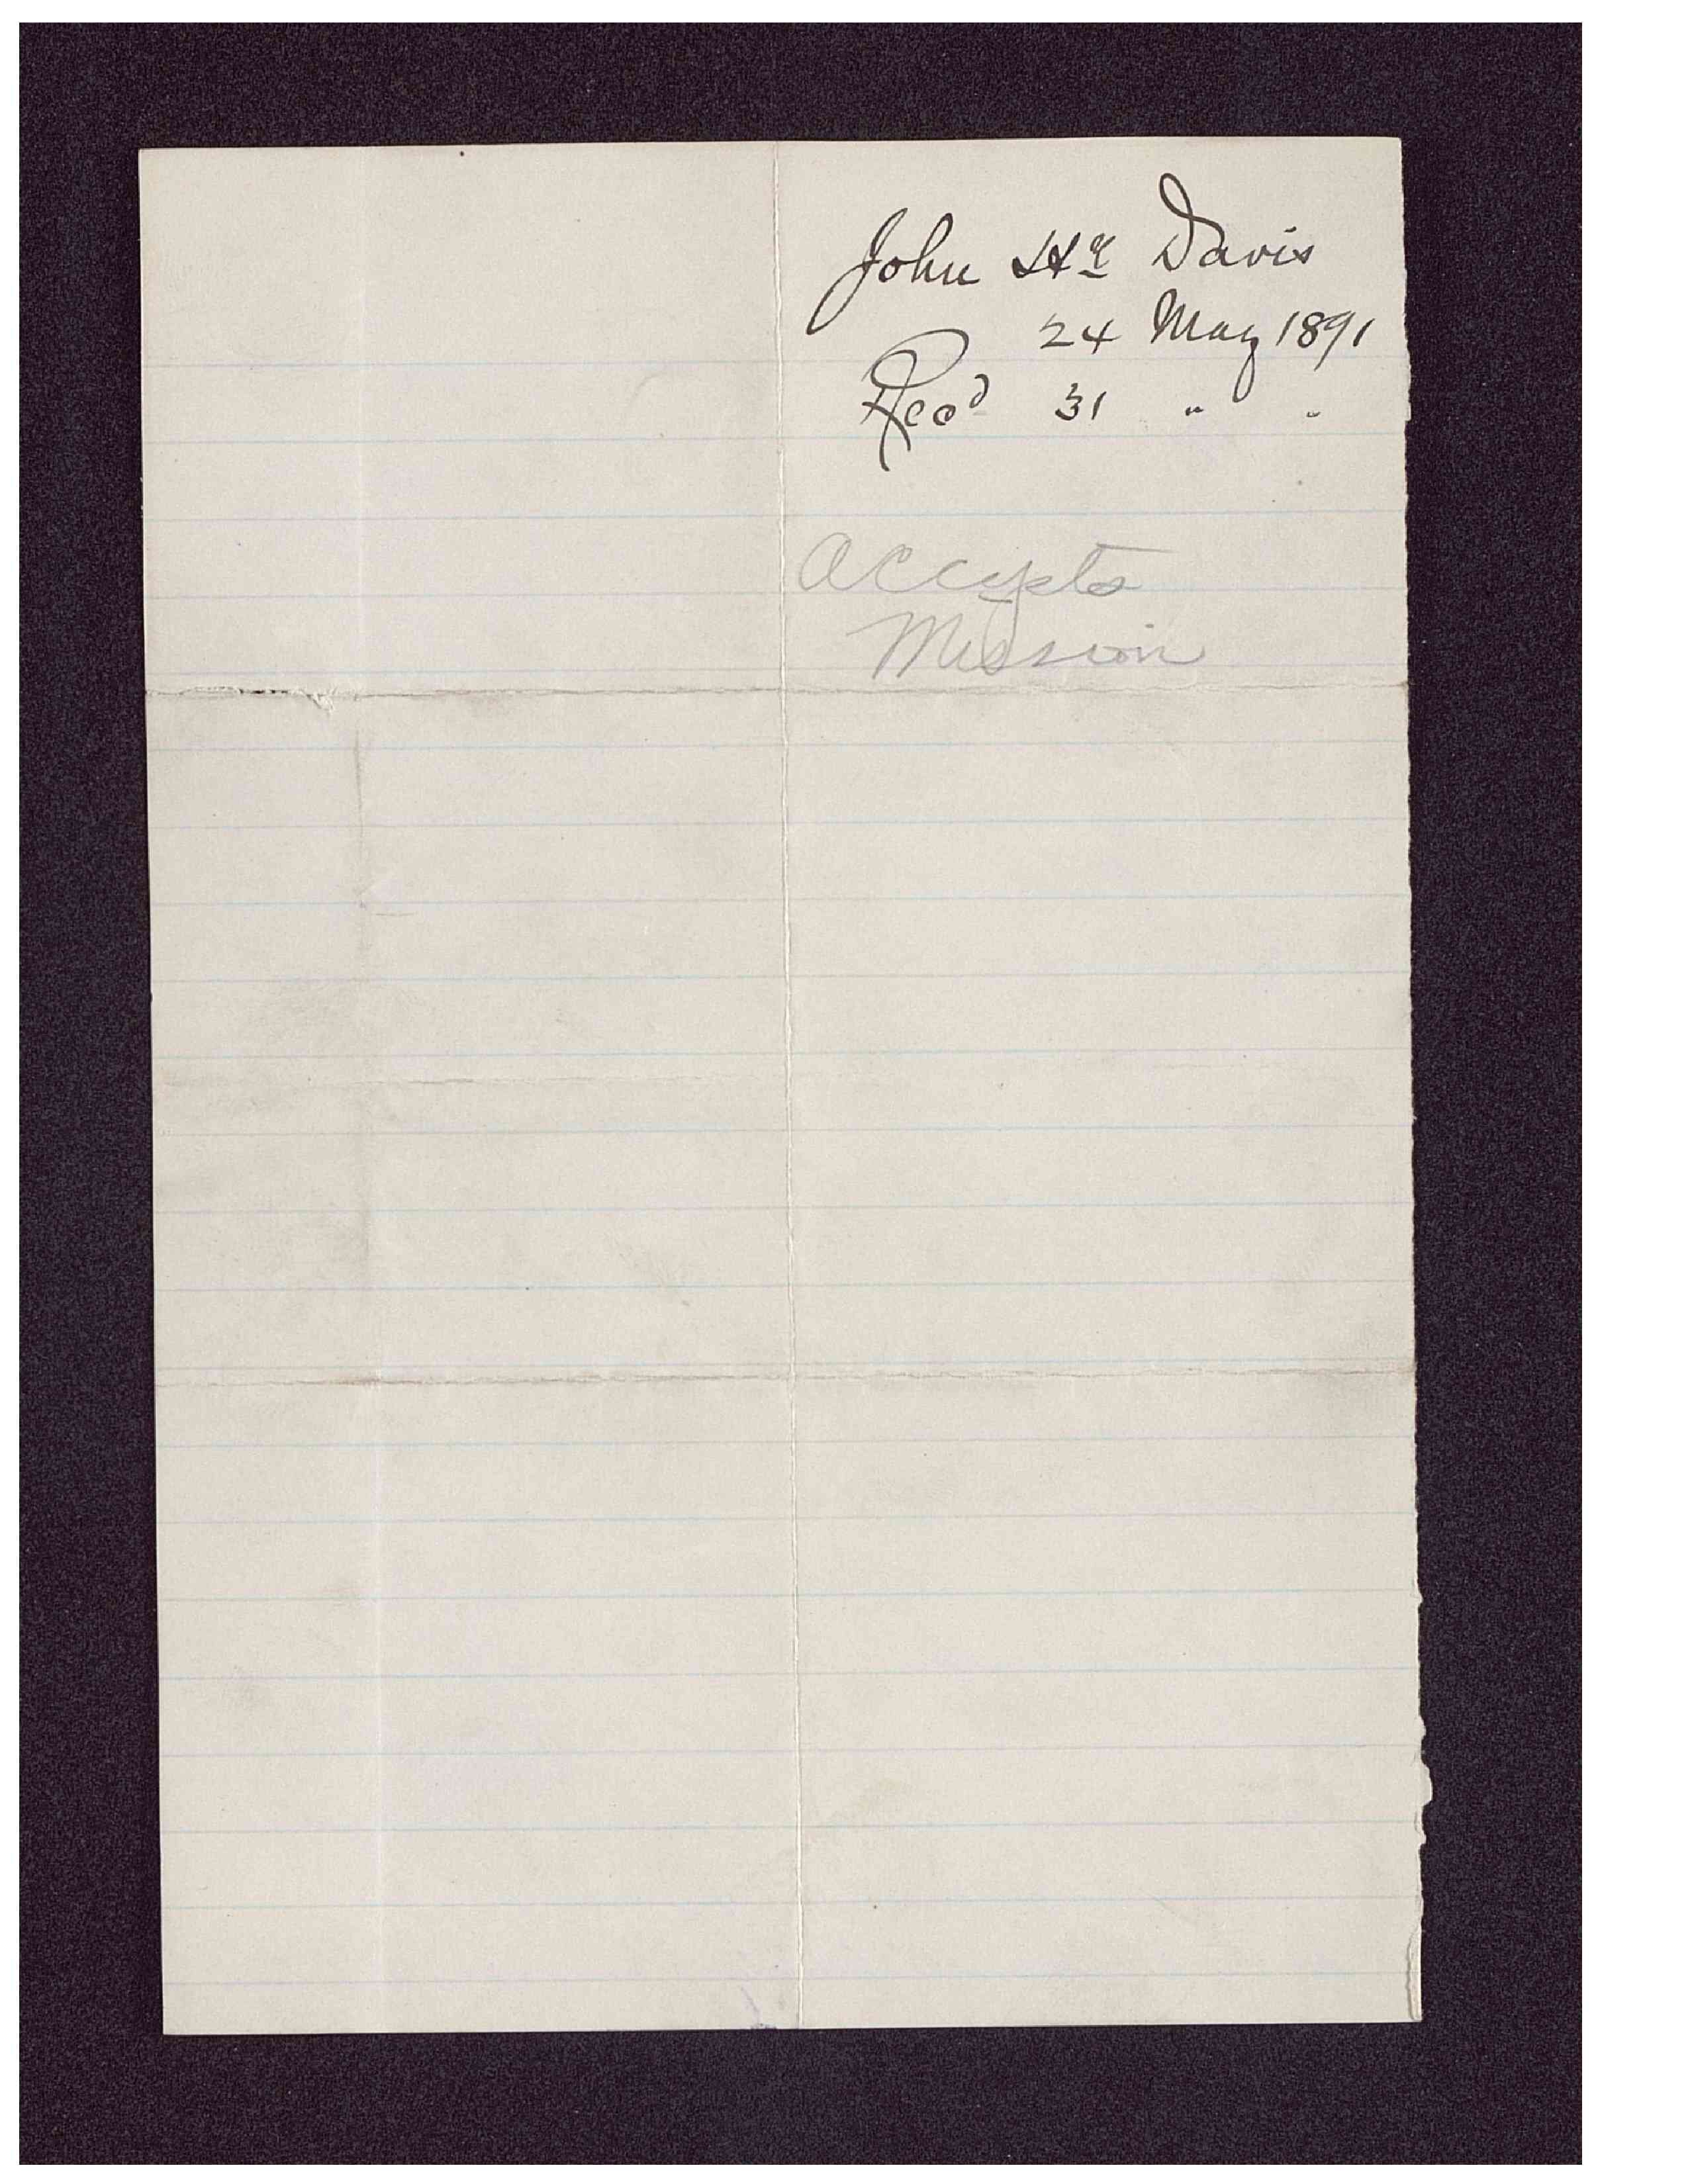 John Hy Davis
24 May 1891
Recd 31 " "
Accepts
Mission